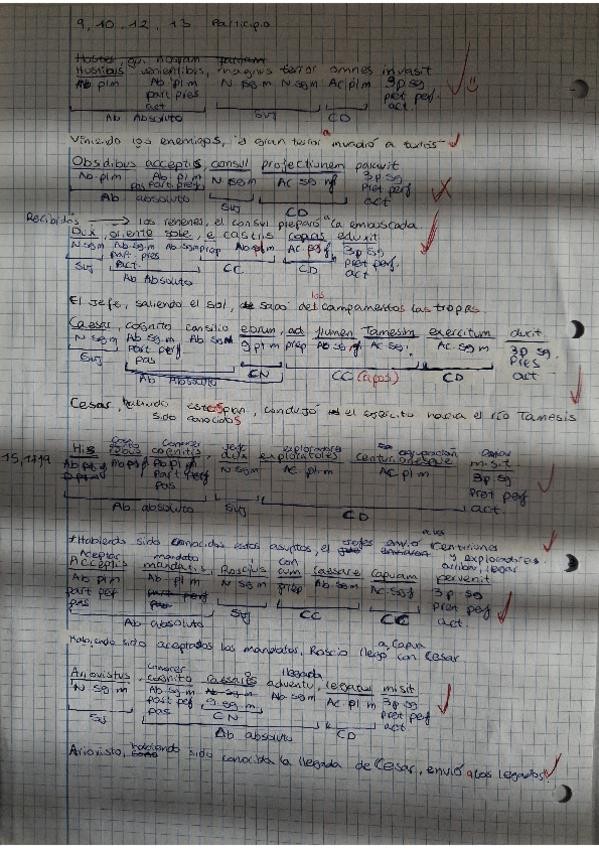 9, 10, 12, 13 Participio
Hostibus venientibus, magnus terror omnes invasit
Ab pl m Ab pl m N sg m N sg m Ac pl m 3p sg
part pres pret perf
act act
Ab Absoluto Suj CD
Viniendo los enemigos, el gran terror invadió a todos
Obsidibus acceptis, consul profectionem paravit
Ab pl m Ab pl m N sg m Ac sg f 3p sg
Pret perf
Ab absoluto Suj CD act
Recibidos los rehenes, el consul preparó la emboscada
Dux, oriente sole, e castris copias eduxit
N sg m Ab sg m Ab sg m prep 3p sg
part. pres pret perf
Suj act. CC CD act
Ab Absoluto
El Jefe, saliendo el sol, sacó de los campamentos las tropas
Caesar, cognito consilio eorum, ad flumen Tamesim exercitum duxit
N sg m Ab sg m Ab sg g pl m prep Ac sg Ac sg m 3p sg
Part perf Pres
Suj pas CN CC (apos) CD act
Ab Absoluto
Cesar, sido conocidos este plan, condujo el ejército hacia el río Tamesis
15, 17, 19
Cosa Conocer Jefe exploradores enviar
His rebus cognitis, dux exploratores centurionesque misit
Ab pl f Ab pl f N sg m Ac pl m Ac pl m 3p sg
Part perf Pret perf
pas act
Ab absoluto Suj CD
Habiendo sido conocidos estos asuntos, el jefe envió a los centuriones y exploradores.
Aceptar mandato con arribar, llegar
Acceptis mandatis, Roscius cum Caesare Capuam pervenit
Ab pl m Ab pl m N sg m prep Ab sg m Ac sg f 3p sg
part perf Pret perf
pas act.
Ab absoluto Suj CC CC
Habiendo sido aceptados los mandatos, Roscio llegó con Cesar a Capua
conocer llegada
Ariovistus, cognito Caesaris adventu, legatos misit
N sg m Ab sg m g sg m Ab sg m Ac pl m 3p sg
Part perf pret perf
Suj pas CN CD act
Ab absoluto
Ariovisto, habiendo sido conocida la llegada de Cesar, envió a los legados.